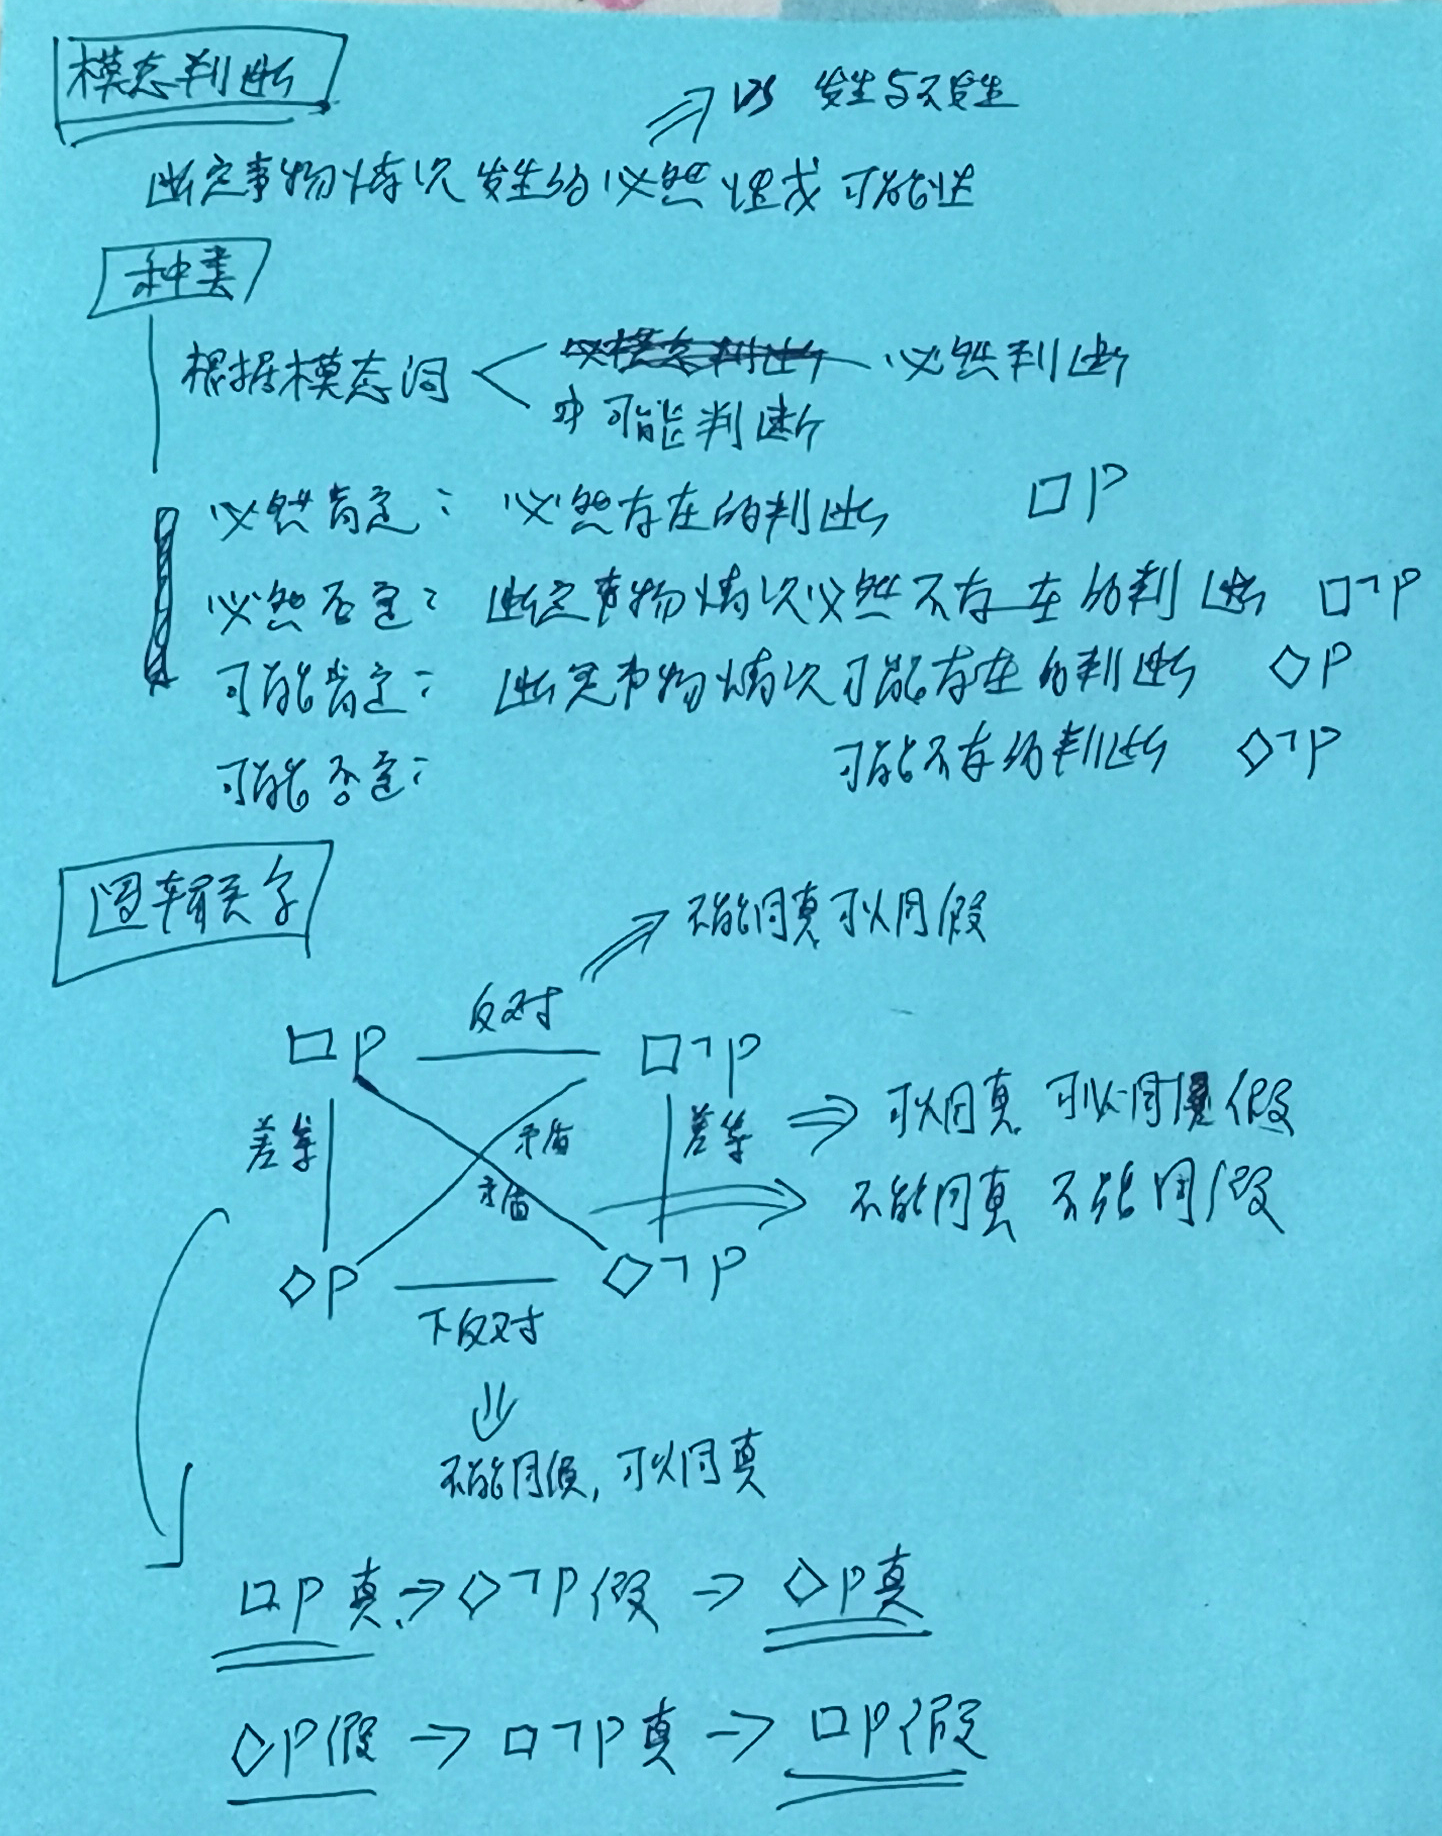 模态判断
VS 发生与不发生
断定事物情况发生的必然性或可能性
种类
根据模态词
必然判断
可能判断
必然肯定: 必然存在的判断 □P
必然否定: 断定事物情况必然不存在的判断 □¬P
可能肯定: 断定事物情况可能存在的判断 ◇P
可能否定: 可能不存的判断 ◇¬P
逻辑关系
不能同真可以同假
反对
□P □¬P
差等 矛盾 差等 可以同真 可以同假
矛盾 不能同真 不能同假
◇P ◇¬P
下反对
不能同假, 可以同真
□P真→◇¬P假→◇P真
◇P假→□¬P真→□P假